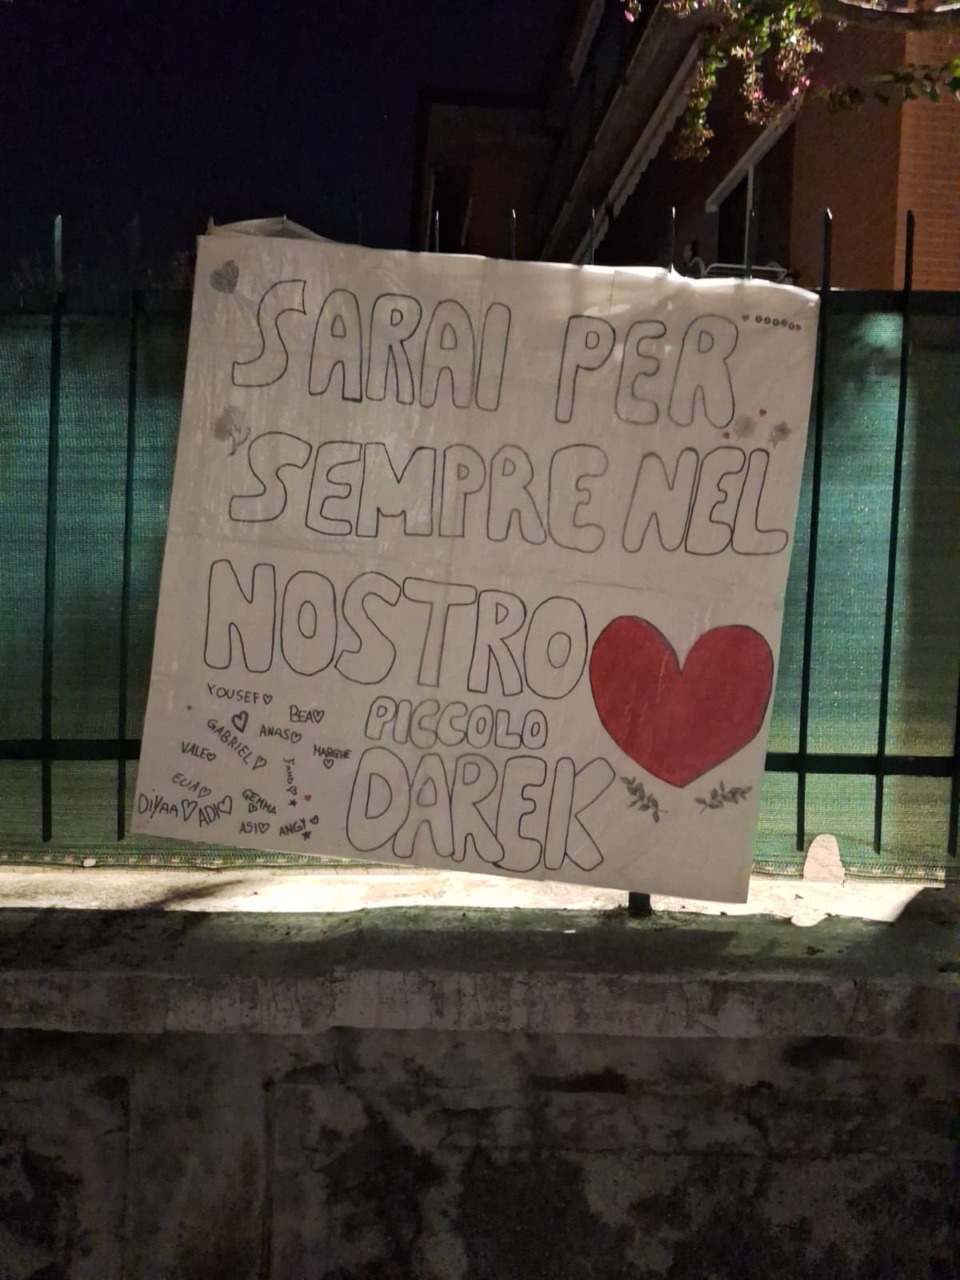 SARAI PER
SEMPRE NEL
NOSTRO
PICCOLO
DAREK
YOUSEF
BEA
GABRIEL
ANAS
MARGHE
VALE
ELIA
GEMMA
DIYAA
ADI
ASI
ANGY